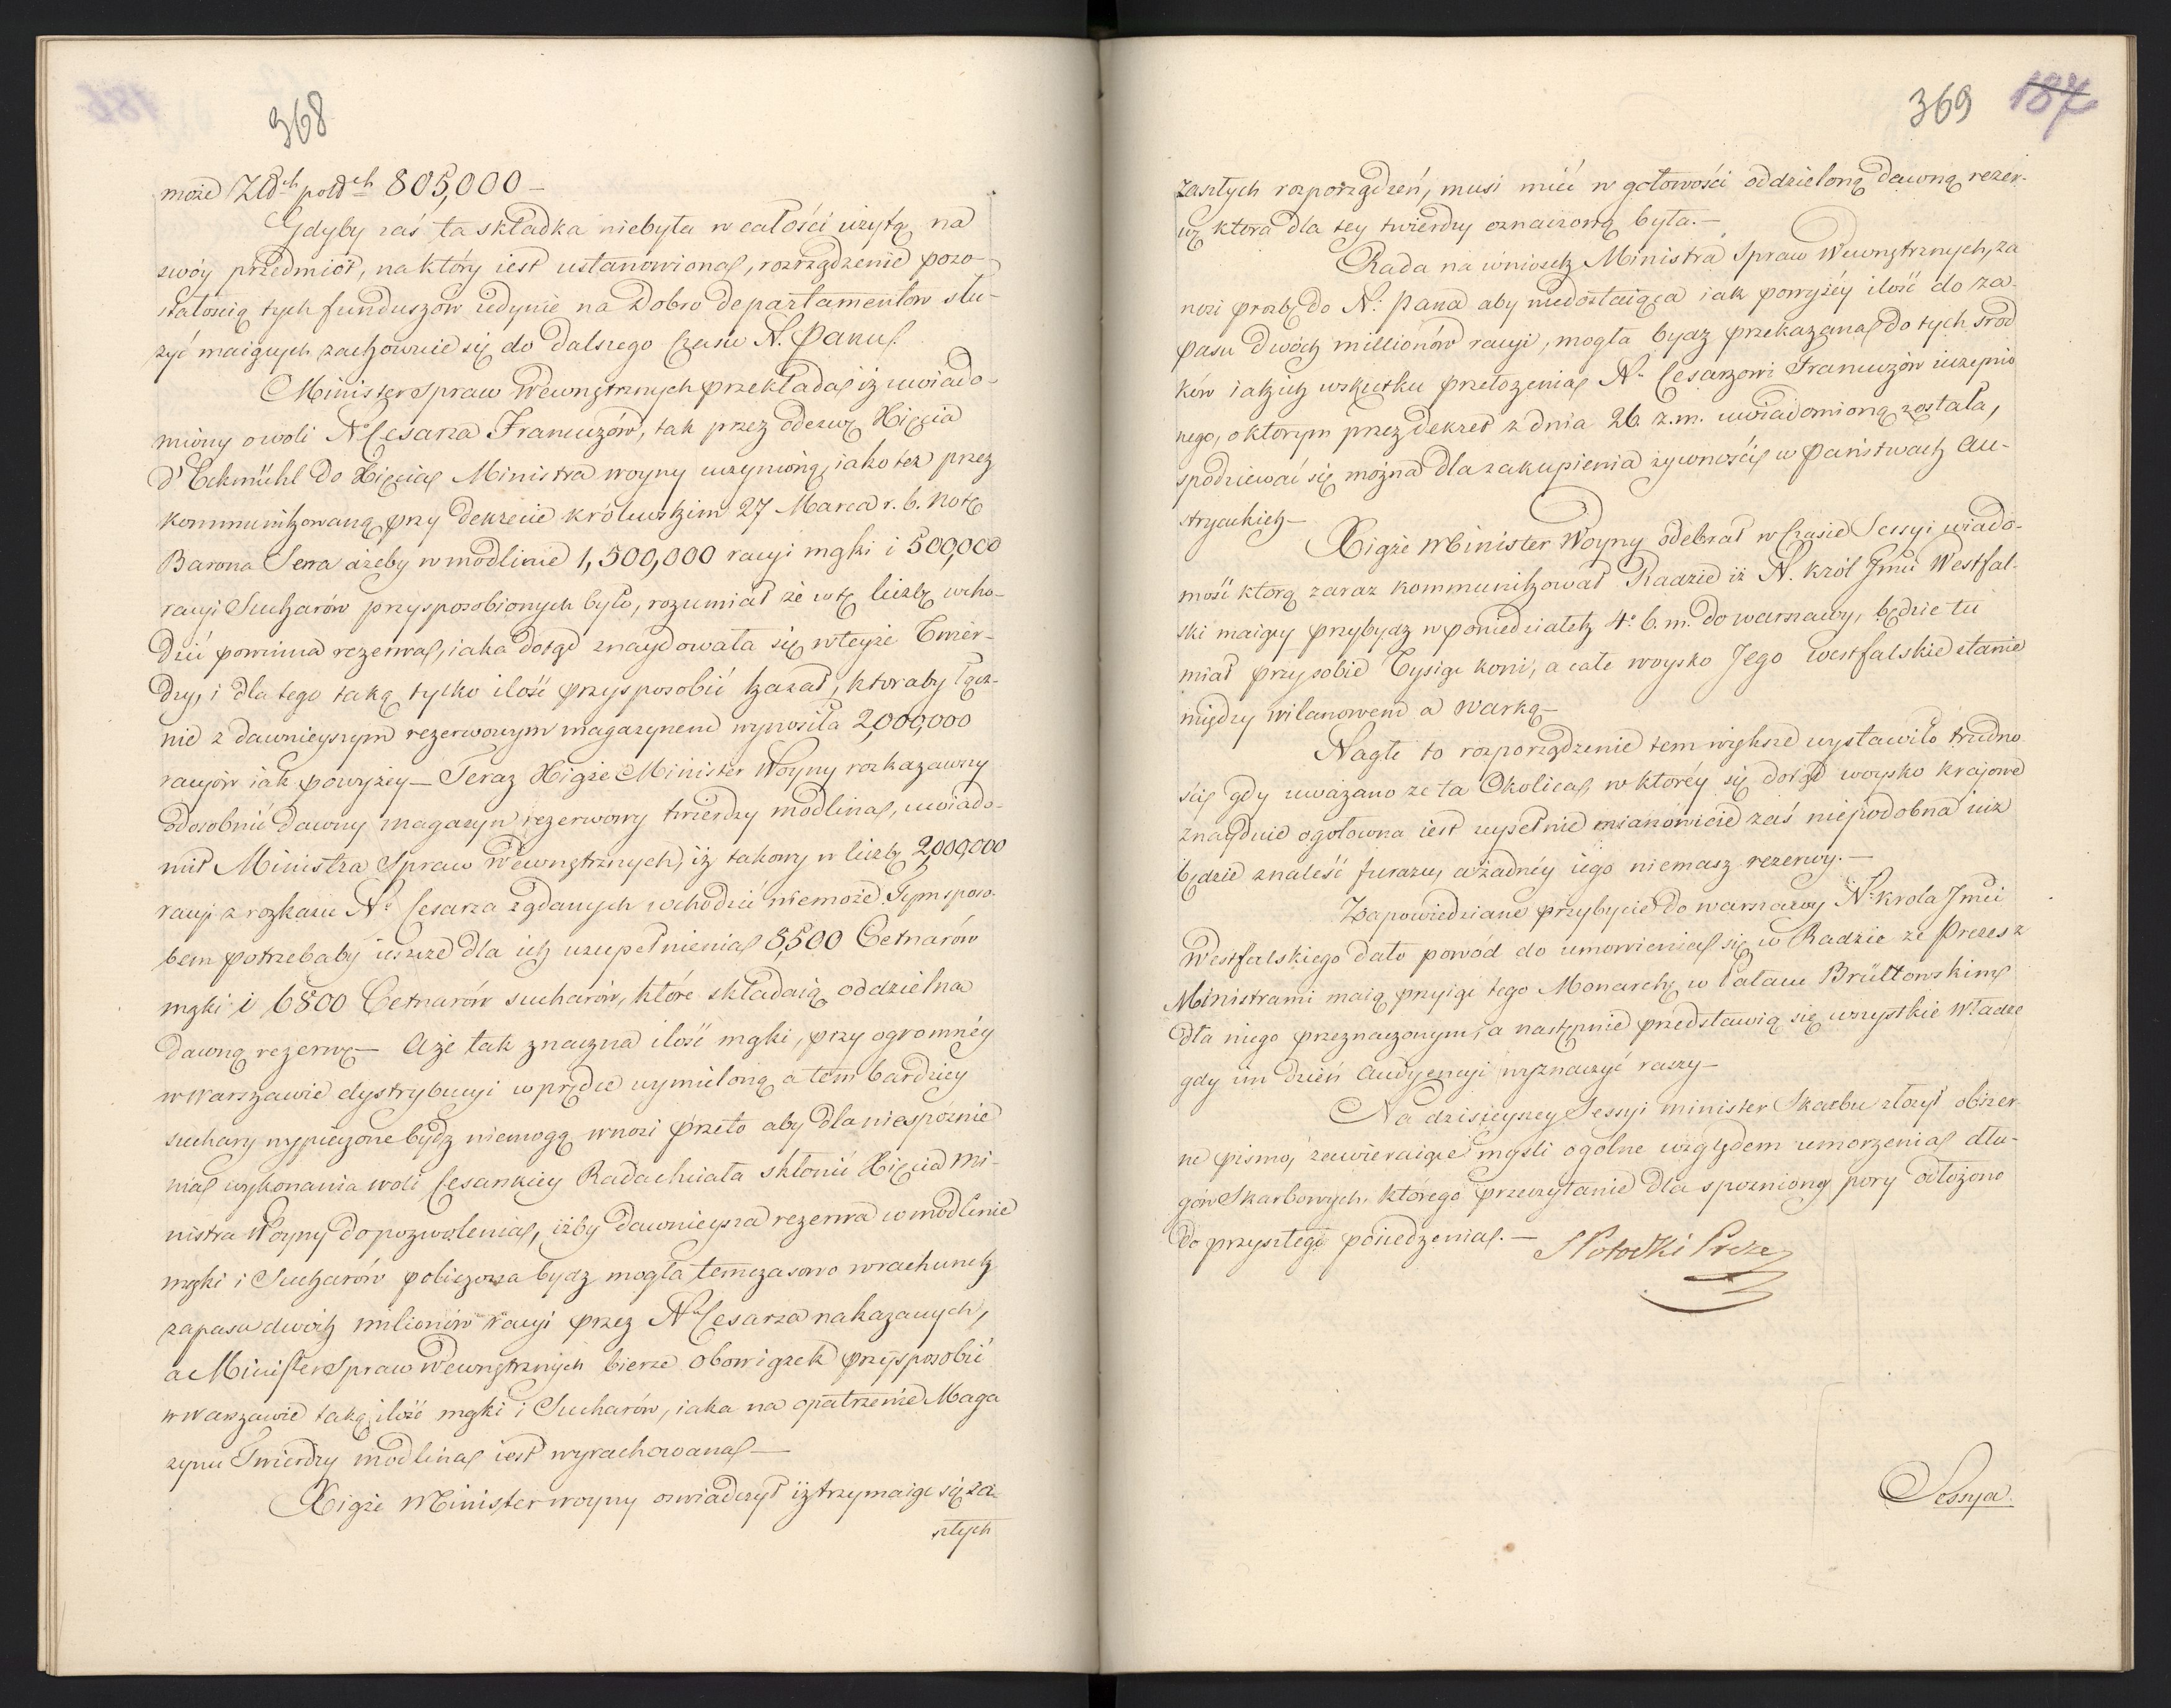 368
może Złch polch 805,000 –
Gdyby zaś ta składka niebyła w całości użytą na
swóy przedmiot, na który iest ustanowiona, rozrządzenie pozo-
stałością tych funduszów iedynie na dobro departamentów słu-
żyć maiących zachowuie się do dalszego czasu N. Panu.
Minister Spraw Wewnętrznych przekłada iż uwiado-
miony o woli No Cesarza Francuzów, tak przez odezwę Xięcia
d'Eckmühl do Xięcia Ministra woyny uczynioną, iako też przez
kommunikowaną przy dekrecie królewskim 27 Marca r. b. notę
Barona Serra ażeby w modlinie 1,500,000 racyi mąki i 500,000
racyi Sucharów przysposobionych było, rozumiał że w tę liczbę wcho-
dzić powinna rezerwa, iaka dotąd znaydowała się w teyże Twier-
dzy, i dla tego taką tylko ilość przysposobić kazał, ktoraby łącz-
nie z dawnieyszym rezerwowym magazynem wynosiła 2,000,000
racyów iak powyżey – Teraz Xiąże Minister Woyny rozkazawszy
odosobnić dawny magazyn rezerwowy twierdzy modlina, uwiado-
mił Ministra Spraw Wewnętrznych, iż takowy w liczbę 2,000,000
racyi z rozkazu No Cesarza żądanych wchodzić niemoże. Tym sposo-
bem potrzebaby ieszcze dla ich uzupełnienia 8,500 Cetnarów
mąki i 6800 Cetnarów sucharów, które składaią oddzielną
dawną rezerwę – A że tak znaczna ilość mąki, przy ogromnéy
w Warszawie dystrybucyi w prędce wymieloną a tem bardziey
suchary wypieczone bydź niemogą wnosi przeto aby dla niespóźnie
nia wykonania woli Cesarskiey Rada chciała skłonić Xięcia Mi-
nistra Woyny do pozwolenia, iżby dawnieysza rezerwa w modlinie
mąki i Sucharów policzona bydź mogła temczasowo w rachunek
zapasu dwóch milionów racyi przez No Cesarza nakazanych,
a Minister Spraw Wewnętrznych bierze obowiązek przysposobić
w Warszawie taką ilość mąki i Sucharów, iaka na opatrzenie Maga
zynu Twierdzy modlina iest wyrachowana –
Xiąże Minister woyny oswiadczył iż trzymaiąc się za-
szłych
369 187
zaszłych rozporządzeń, musi mieć w gotowości oddzieloną dawną rezer-
wę ktora dla tey twierdzy oznaczoną była. –
Rada na wniosek Ministra Spraw Wewnętrznych, za
nosi prozbę do N. Pana aby niedostaiąca iak powyżéy ilość do za-
pasu dwóch millionów racyi, mogła bydz przekazana do tych srod
ków iakich wskutku przełożenia No Cesarzowi Francuzów uczynio
nego, o ktorym przez dekret z dnia 26. z. m. uwiadomioną została,
spodziewać się można dla zakupienia żywności w Państwach Au-
stryackich –
Xiąże Minister Woyny odebrał w Czasie Sessyi wiado-
mość którą zaraz kommunikował Radzie iż N. Król Jmć Westfal-
ski maiący przybydz w poniedziałek 4o b. m. do warszawy, będzie tu
miał przy sobie Tysiąc koni, a całe woysko Jego westfalskie stanie
między wilanowem a Warką –
Nagłe to rozporządzenie tem większe wystawiło trudno
ści, gdy uważano że ta okolica, w któréy się dotąd woysko krajowe
znayduie ogołocona iest zupełnie mianowicie zaś niepodobna iuż
będzie znaleść furażu, a żadnéy iego niemasz rezerwy. –
Zapowiedziane przybycie do warszawy No. krola Jmci
Westfalskiego dało powód do umowienia się w Radzie że Prezes z
Ministrami maią przyiąć tego Monarchę w Pałacu Brüllowskim
dla niego przeznaczonym, a następnie przedstawią się wszystkie Władze
gdy im dzień Audyencyi wyznaczyć raczy –
Na dzisieyszey Sessyi minister Skarbu złożył obszer
ne pismo, zawieraiące myśli ogolne względem umorzenia dłu-
gów Skarbowych. którego przeczytanie dla spoznioney pory odłożono
do przyszłego posiedzenia. – S Potocki Prezes
Sessya.